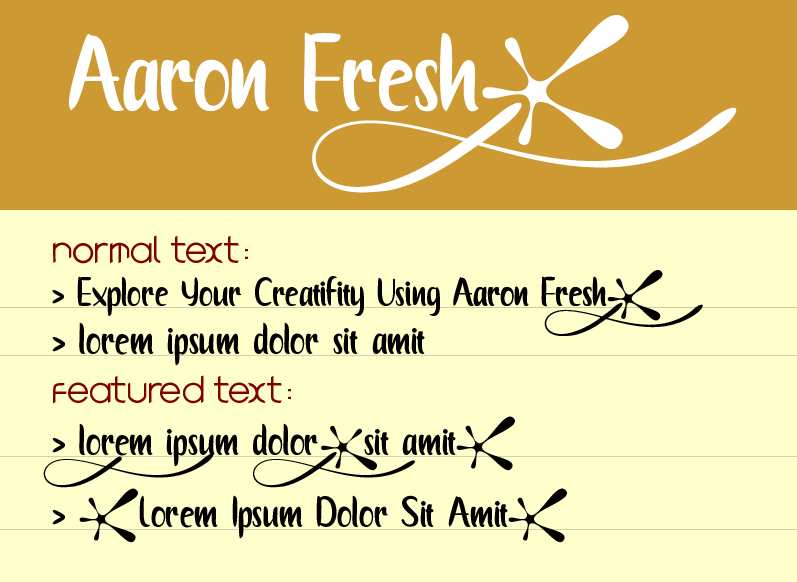 Aaron Fresh
normal text:
> Explore Your Creatifity Using Aaron Fresh
> lorem ipsum dolor sit amit
Featured text:
> lorem ipsum dolor sit amit
> Lorem Ipsum Dolor Sit Amit